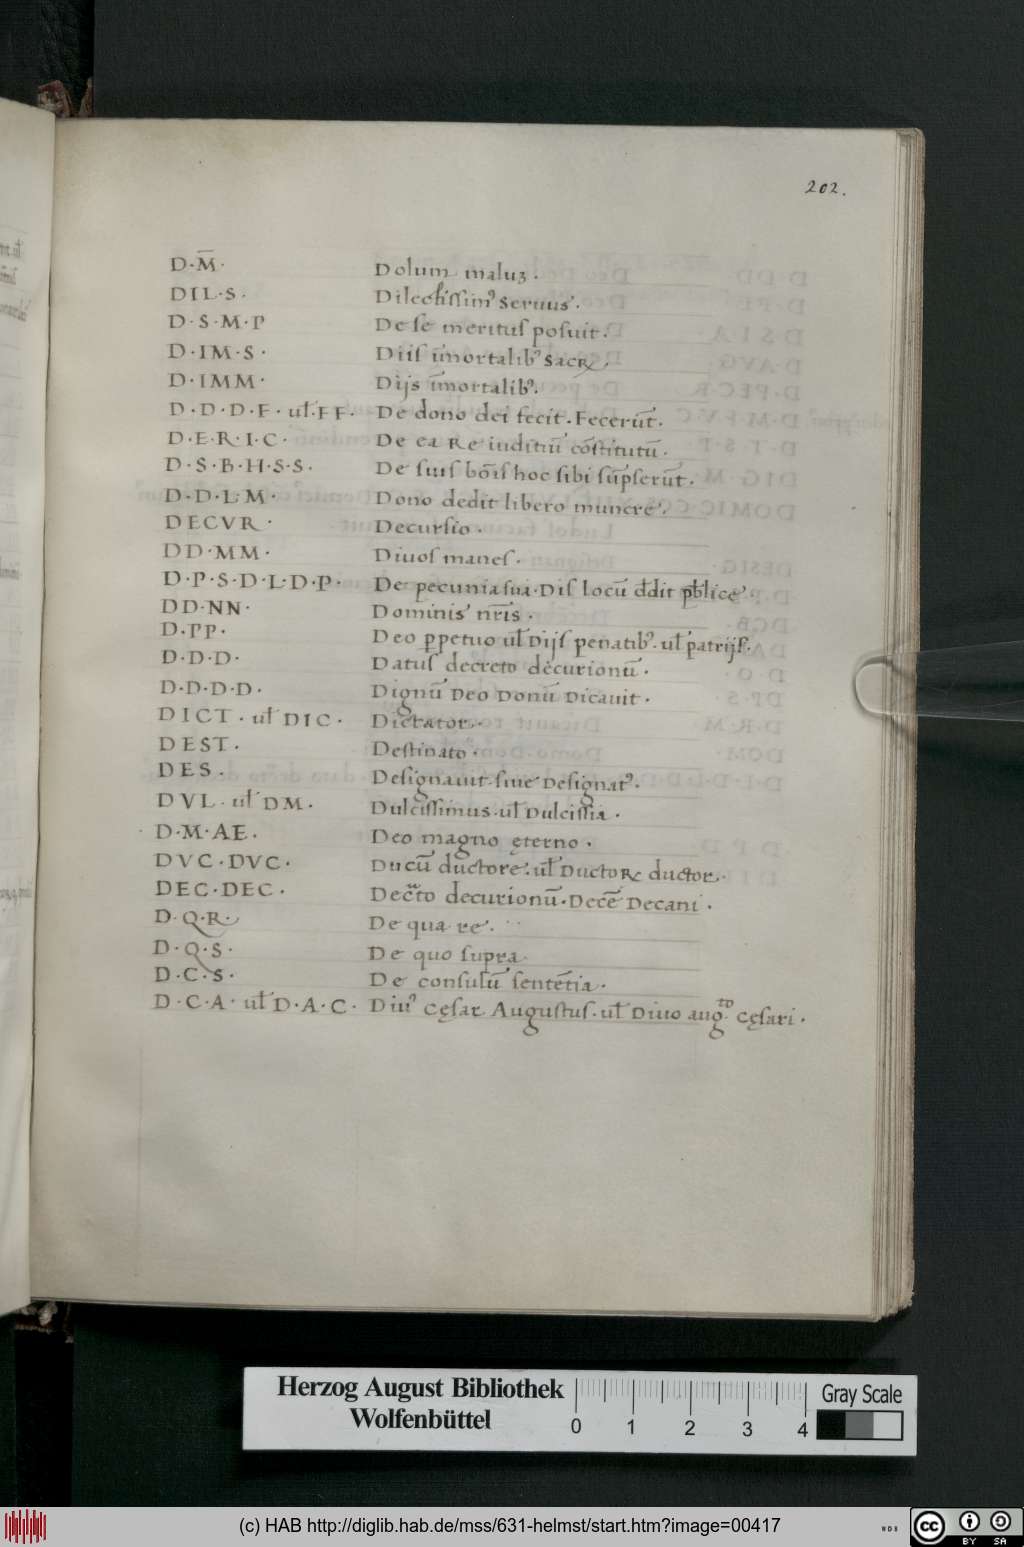 202.
D·M̅· Dolum maluʒ·
DIL·S· Dilectissimꝰ seruus·
D·S·M·P De se meritus posuit·
D·IM·S· Diis īmortalibꝰ sacꝝ
D·IMM· Dijs īmortalibꝰ·
D·D·D·F· uł·FF· De dono dei fecit·Fecerūt·
D·E·R·I·C· De ea Re iuditiū cōstitutū·
D·S·B·H·S·S· De suis bōis hoc sibi sūpserūt·
D·D·L·M· Dono dedit libero munere·
DECVR· Decursio·
DD·MM· Diuos manes·
D·P·S·D·L·D·P· De pecunia sua·Dis locū dđit pƀlice·
DD·NN· Dominis nr̄is·
D·PP· Deo ꝑpetuo uł Dijs penatibꝰ·uł patrijs·
D·D·D· Datus decreto decurionū·
D·D·D·D· Dignū Deo Donū Dicauit·
DICT· uł DIC· Dictator·
DEST· Destinato·
DES· Designauit·siue Designatꝰ·
DVL· uł DM· Dulcissimus·uł Dulcissīa·
D·M·AE· Deo magno ęterno·
DVC·DVC· Ducū ductore·uł Ductoꝝ ductor·
DEC·DEC· Dec̄to decurionū·Decē Decani·
D·Q·R· De qua re·
D·Q·S· De quo supra·
D·C·S· De consulū sentētia·
D·C·A· uł D·A·C· Diuꝰ Cęsar Augustus·uł Diuo aug·to Cęsari·
Herzog August Bibliothek
Wolfenbüttel
0 1 2 3 4
Gray Scale
(c) HAB http://diglib.hab.de/mss/631-helmst/start.htm?image=00417
WDB
cc BY SA